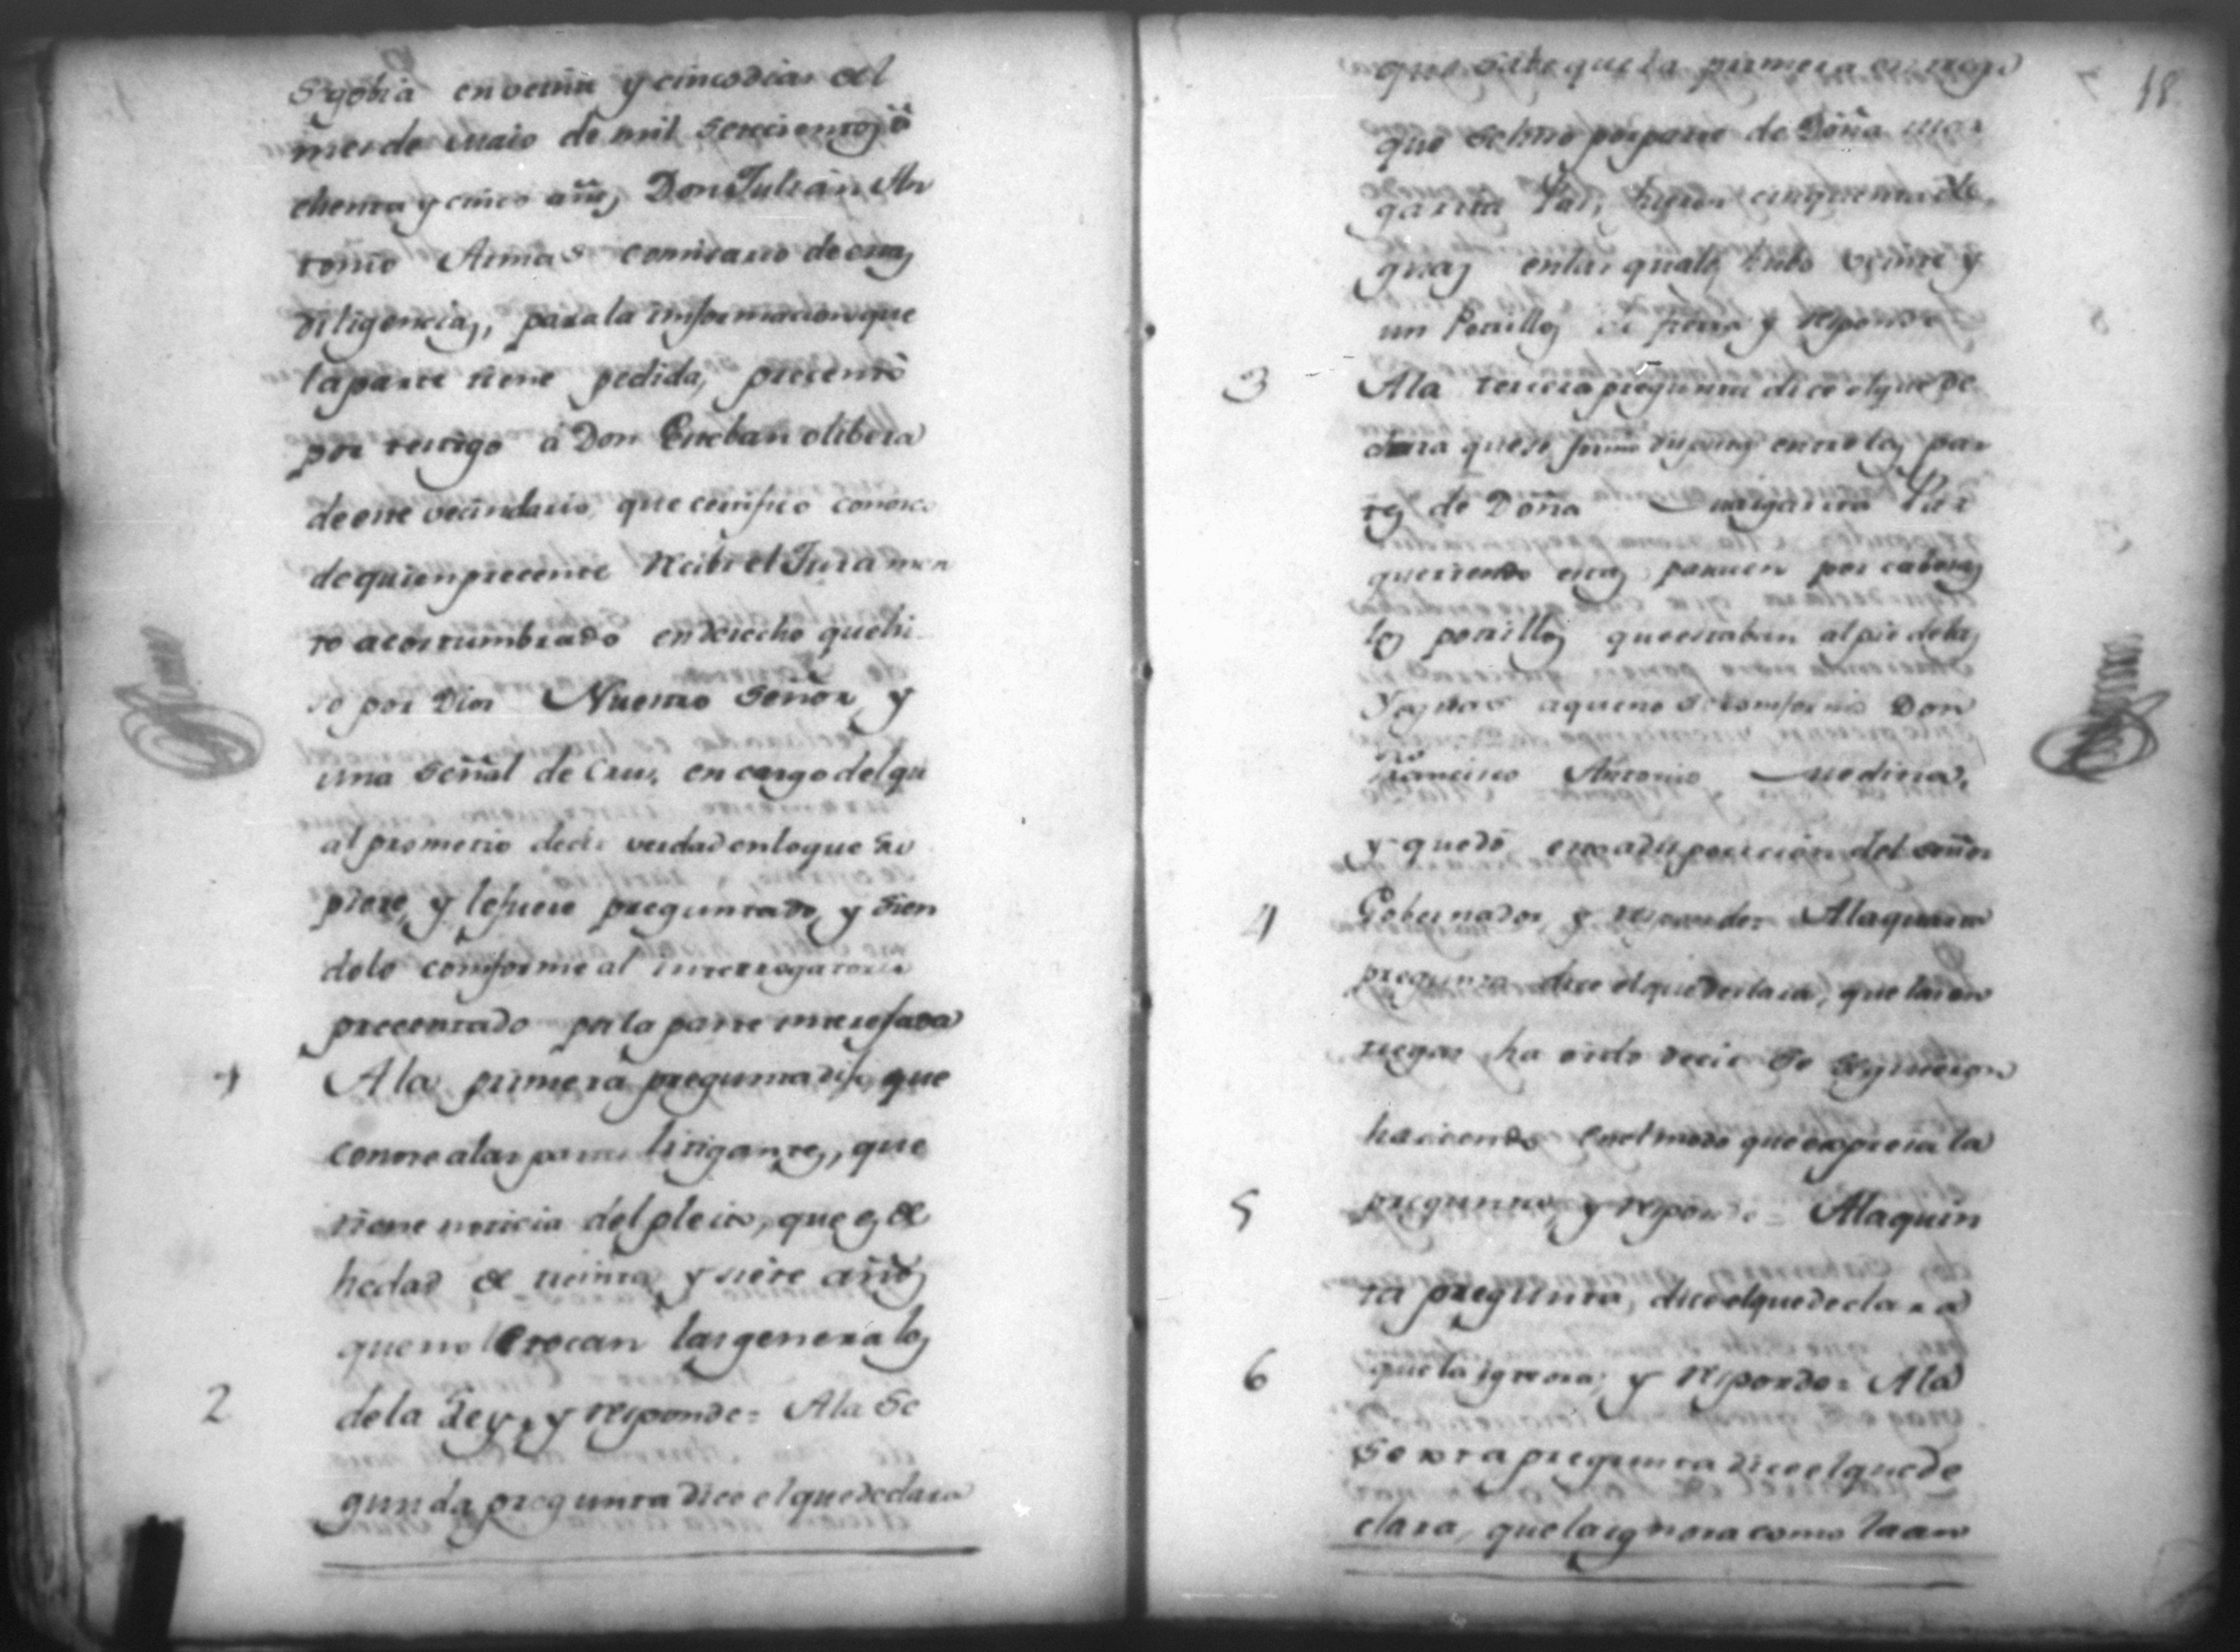 Sigobia en veinte y cinco dias del
mes de Maio de mil setecientos o
chenta y cinco añs, Don Julian An
tonio Armas comisario de estas
diligencias, para la imformacion que
la parte tiene pedida, precentó
por testigo á Don Esteban olibera
de este vecindario, que certifico conosco
de quien precente Recibi el Juramen
to acostumbrado en derecho que hi
so por Dios Nuestro Señor, y
una Señal de Crus, en cargo del qu
al prometio decir verdad en lo que Su
piere, y lefuere preguntado, y Sien
dolo comforme al interrogatorio
precentado por la parte interesada
1 A la primera pregunta dijo, que
conose alas partes litigantes, que
tiene noticia del pleito, que es de
hedad de treinta y siete años
que no le tocan las generales
2 de la Ley, y responde= A la Se
gunda pregunta dice el que declara
18
que Sabe que la primera entrega
que se hiso por parte de Doña Mar
garita Pas, fueron cinquenta Ye
guas en las quales hubo veinte y
un Potrillos y responde
3 A la tercera pregunta dice el que de
clara que se formó disputa entre las par
tes de Doña Margarita Pas
queriendo estas pasasen por cabesas
los potrillos que estaban al pie de las
Yeguas aque no se comformó Don
Francisco Antonio Medina,
y quedó esto a disposicion del Señor
4 Gobernador, y responde= A la quarta
pregunta dice el que declara, que las en
tregas ha oido decir Se Siguieron
haciendo en el modo que expresa la
5 pregunta, y responde= A la quin
ta pregunta, dice el que declara
6 que la ignora, y responde= A la
Sexta pregunta dice el que de
clara, que la ignora como la an